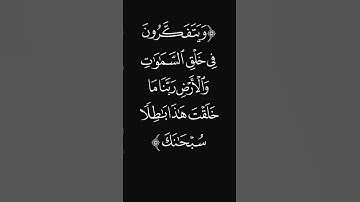 ﴿وَيَتَفَكَّرُونَ
فِي خَلْقِ السَّمَٰوَٰتِ
وَالْأَرْضِ رَبَّنَا مَا
خَلَقْتَ هَٰذَا بَٰطِلًا
سُبْحَٰنَكَ﴾